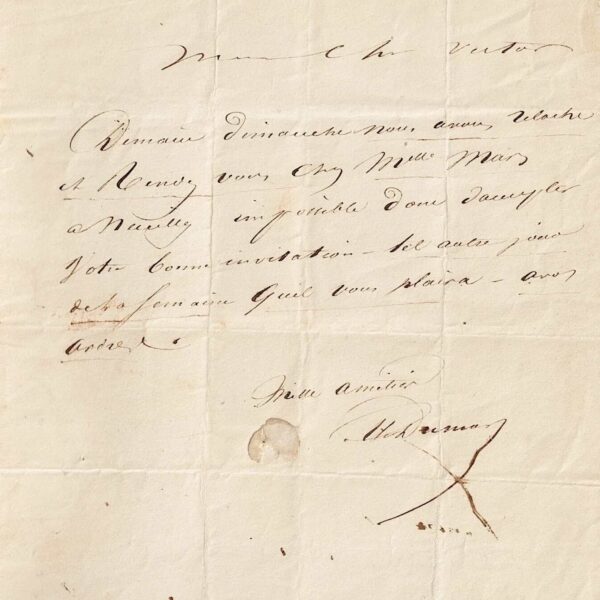 Mon Cher Victor
Demain dimanche nous avons relache
et Rendez vous chez Melle Mars
a Neuilly impossible donc daccepter
Votre bonne invitation – tel autre jour
de la semaine quil vous plaira – a vos
ordres
Mille amitiés
Al Dumas